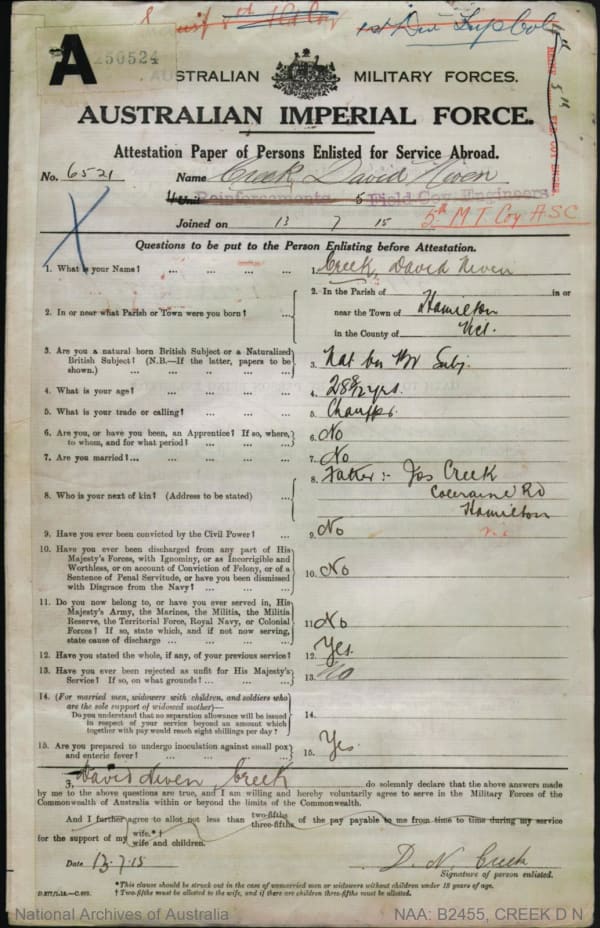 1st Div Sup Col
A
250524
AUSTRALIAN MILITARY FORCES.
AUSTRALIAN IMPERIAL FORCE.
Attestation Paper of Persons Enlisted for Service Abroad.
No. 6521 Name Creek, David Niven
Unit Reinforcements 5 Field Coy Engineers
Joined on 13 7 15 5th M T Coy ASC
Questions to be put to the Person Enlisting before Attestation.
1. What is your Name? ... ... ... ... 1. Creek, David Niven
2. In or near what Parish or Town were you born? ... 2. In the Parish of in or
near the Town of Hamilton
in the County of Vict.
3. Are you a natural born British Subject or a Naturalized
British Subject? (N.B.—If the latter, papers to be
shown.) ... ... ... ... 3. Nat bn Br Subj.
4. What is your age? ... ... ... ... 4. yrs.
5. What is your trade or calling? ... ... ... 5. Chauffr.
6. Are you, or have you been, an Apprentice? If so, where,
to whom, and for what period? ... ... ... 6. No
7. Are you married? ... ... ... ... 7. No
8. Who is your next of kin? (Address to be stated) ... 8. Father :- Jas Creek
Coleraine Rd
Hamilton
9. Have you ever been convicted by the Civil Power? ... 9. No
10. Have you ever been discharged from any part of His
Majesty's Forces, with Ignominy, or as Incorrigible and
Worthless, or on account of Conviction of Felony, or of a
Sentence of Penal Servitude, or have you been dismissed
with Disgrace from the Navy? ... ... ... 10. No
11. Do you now belong to, or have you ever served in, His
Majesty's Army, the Marines, the Militia, the Militia
Reserve, the Territorial Force, Royal Navy, or Colonial
Forces? If so, state which, and if not now serving,
state cause of discharge ... ... ... 11. No
12. Have you stated the whole, if any, of your previous service? 12. Yes.
13. Have you ever been rejected as unfit for His Majesty's
Service? If so, on what grounds? ... ... 13. No
14. (For married men, widowers with children, and soldiers who
are the sole support of widowed mother)—
Do you understand that no separation allowance will be issued
in respect of your service beyond an amount which
together with pay would reach eight shillings per day? 14.
15. Are you prepared to undergo inoculation against small pox
and enteric fever? ... ... ... ... 15. Yes.
I, David Niven Creek do solemnly declare that the above answers made
by me to the above questions are true, and I am willing and hereby voluntarily agree to serve in the Military Forces of the
Commonwealth of Australia within or beyond the limits of the Commonwealth.
And I further agree to allot not less than two-fifths three-fifths of the pay payable to me from time to time during my service
for the support of my wife.*† wife and children.
Date 13.7.15 D. N. Creek
Signature of person enlisted.
* This clause should be struck out in the case of unmarried men or widowers without children under 18 years of age.
† Two-fifths must be allotted to the wife, and if there are children three-fifths must be allotted.
National Archives of Australia NAA: B2455, CREEK D N